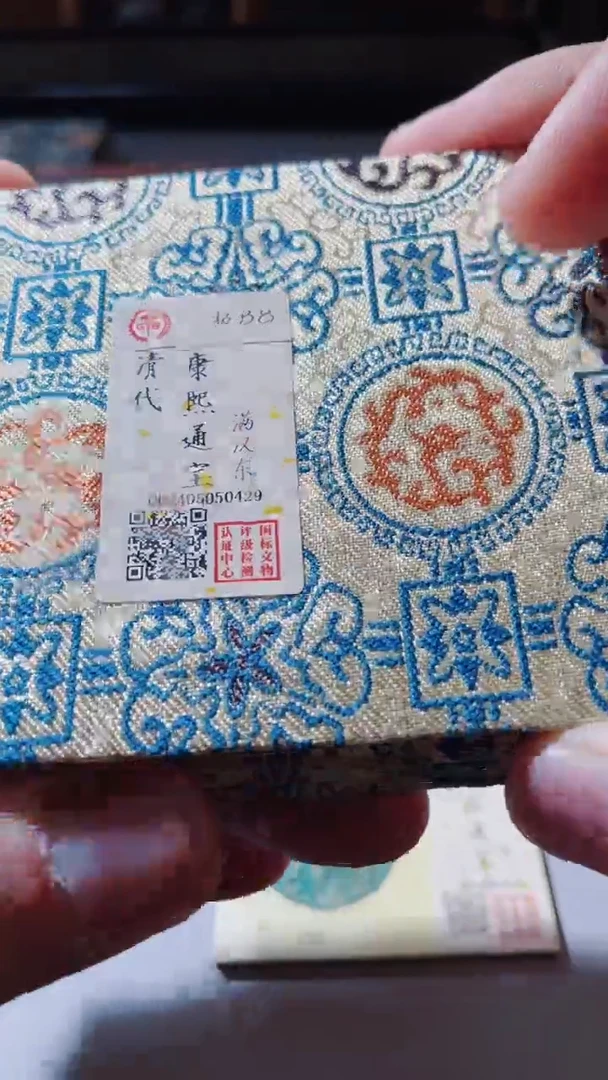 清代
康熙通宝
满汉东
05050429
国标文物
评级检测
认证中心